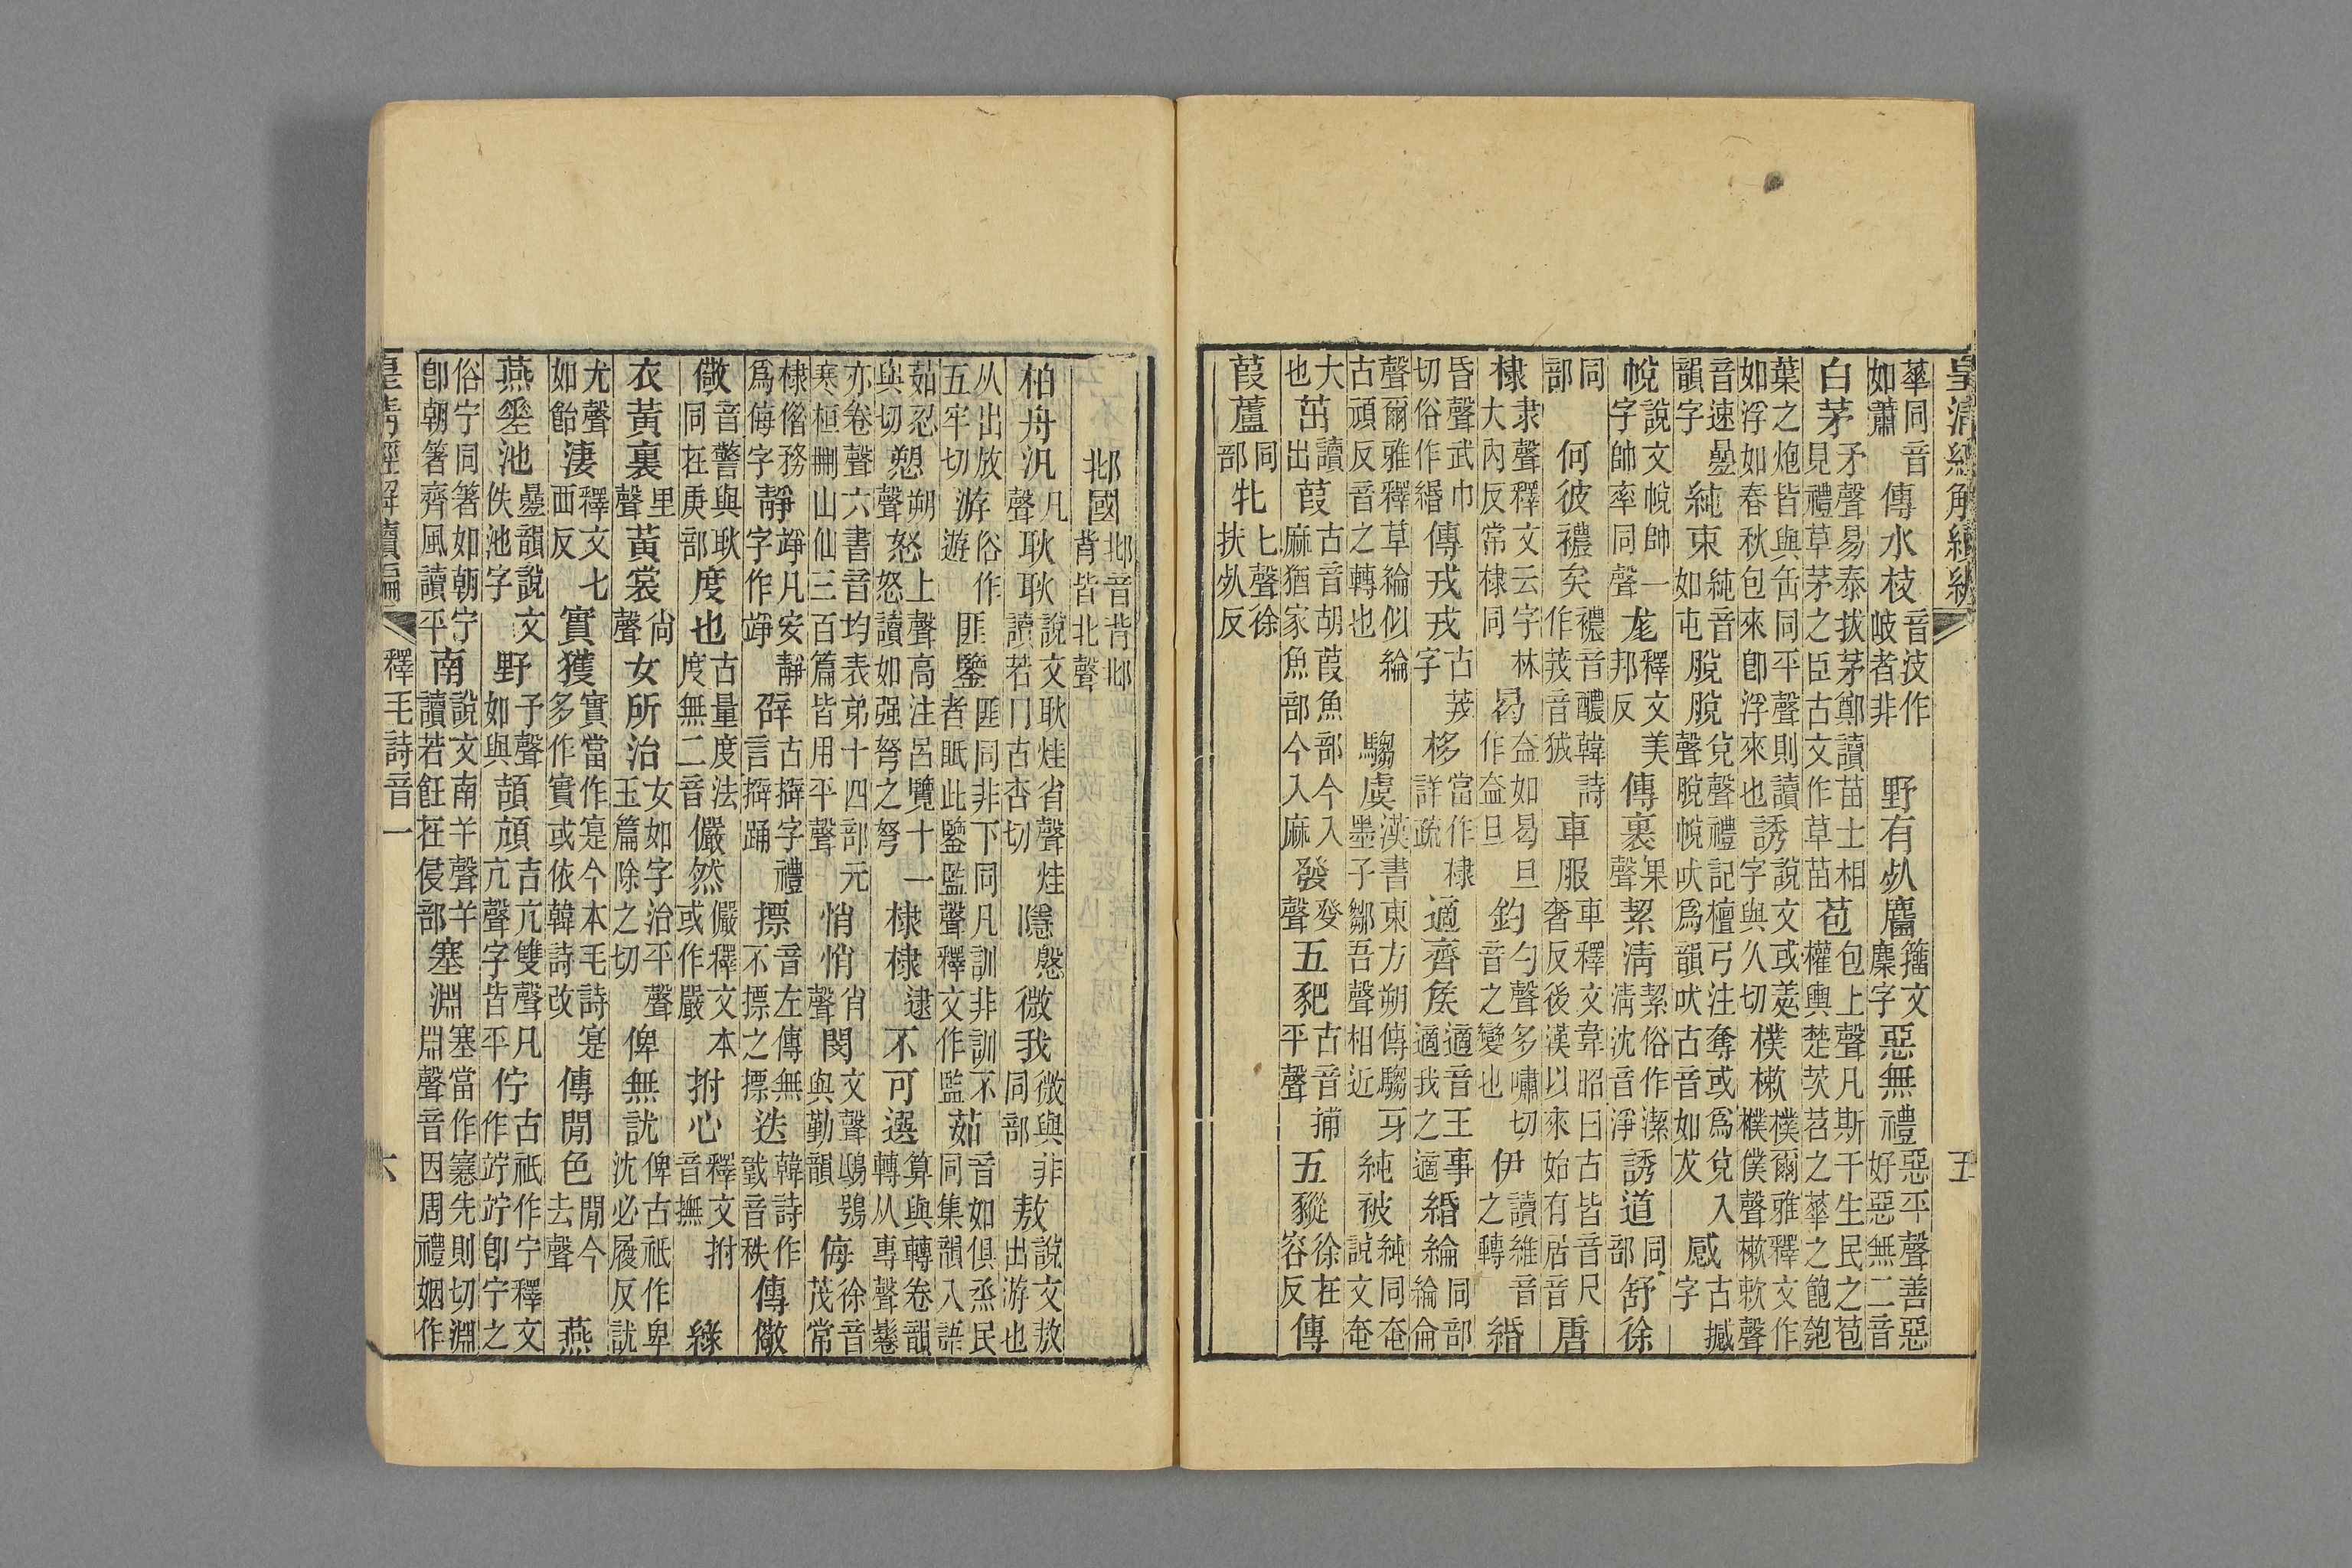 皇清經解續編 五
蕐同音如蕭傳水枝音汥作岐者非野有𣦸麕籀文麇字惡無禮惡平聲善惡好惡無二音
白茅矛聲易泰拔茅鄭讀苗士相見禮草茅之臣古文作草苗苞包上聲凡斯干生民之苞權輿楚茨苕之蕐之飽匏
葉之炮皆與缶同平聲則讀如浮如春秋包來卽浮來也誘說文或字與久切樸樕樸爾雅釋文作襥僕聲樕欶聲
音速㬪韻字純束純音如屯脫脫兌聲禮記檀弓注奪或爲兌入聲脫帨吠爲韻吠古音如犮感古撼字
帨說文帨帥一字帥率同聲尨釋文美邦反傳裹果聲絜淸絜俗作潔淸沈音淨誘道同部舒徐
同部何彼襛矣襛音醲韓詩作茙音狨車服車釋文韋昭曰古皆音尺奢反後漢以來始有居音唐
棣隶聲釋文云字林大內反常棣同曷盇如曷旦作盇旦鈞勻聲多嘯切音之變也伊讀維音之轉緍
昏聲武巾切俗作緡傳戎戎古茙字栘當作棣詳疏適齊矦適音王事適我之適緍綸同部綸侖
聲爾雅釋草綸似綸古頑反音之轉也騶虞漢書東方朔傳騶牙墨子鄒吾聲相近純被純同奄說文奄
大也茁讀出葭古音胡葭魚部今入麻猶家魚部今入麻發癹聲五豝古音捕平聲五豵徐在容反傳
葭蘆同部牝匕聲徐扶𣦸反
邶國邶音背邶背皆北聲
柏舟汎凡聲耿耿說文耿炷省聲炷讀若冂古杏切隱慇微我微與非同部敖說文敖出游也
从出放五牢切游俗作遊匪鑒匪同非下同凡訓非訓不者眡此鑒監聲釋文作監茹音如俱烝民同集韻入語
茹忍與切愬朔聲怒上聲高注呂覽十一怒讀如强弩之弩棣棣逮不可選算與轉卷韻轉从專聲鬈
亦卷聲六書音均表弟十四部元寒桓刪山仙三百篇皆用平聲悄悄肖聲閔文聲鴟鴞與勤韻侮徐音茂常
棣偺務爲侮字靜竫凡安靜字作竫辟古擗字禮言擗踊摽音左傳無不摽之摽迭韓詩作戜音秩傳儆
儆音警與耿同在庚部度也古量度法度無二音儼然儼釋文本或作嚴拊心釋文拊音撫綠
衣黃裏里聲黃裳尙聲女所治女如字治平聲玉篇除之切俾無訧俾古祇作卑沈必履反訧
尤聲如飴淒釋文七西反實獲實當作寔今本毛詩寔多作實或依韓詩改傳閒色閒今去聲燕
燕𠌶池㬪韻說文佚池字野予聲如與頡頏吉亢雙聲凡亢聲字皆平佇古祇作宁釋文作竚竚卽宁之
俗宁同箸如朝宁卽朝箸齊風讀平南說文南羊聲羊讀若飪在侵部塞淵塞當作𡫳先則切淵淵聲音因周禮姻作
皇淸經解續編 釋毛詩音一 六